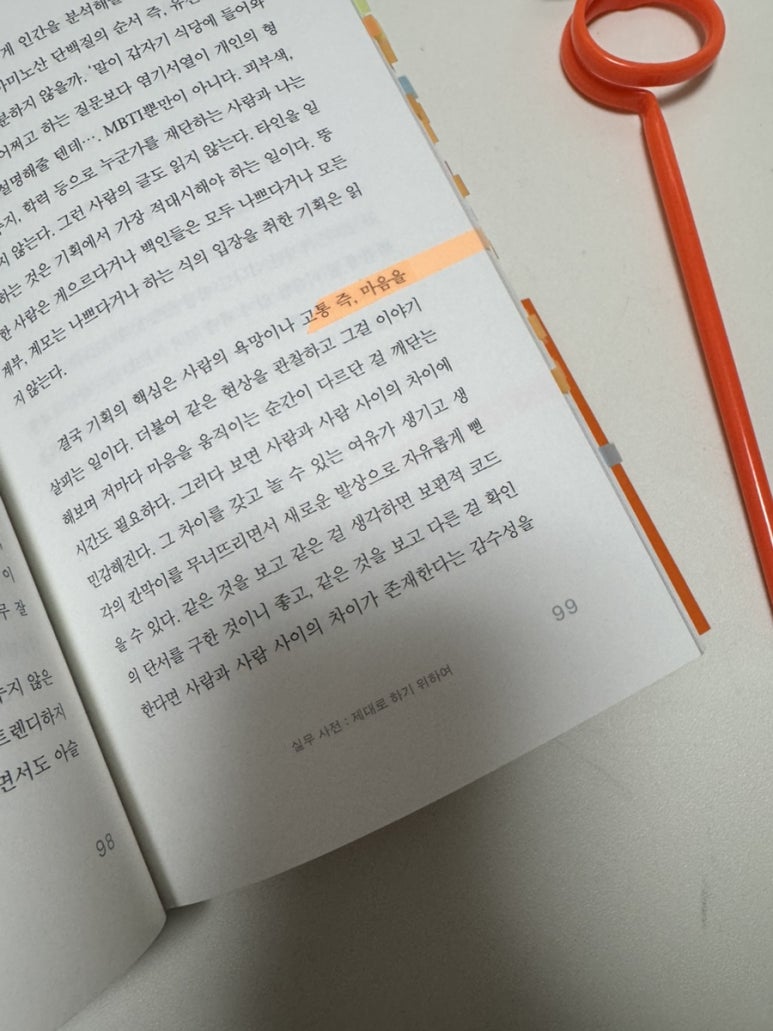 게 인간을 분석해
아미노산 단백질의 순서 즉,
분하지 않을까. '말이 갑자기 식당에 들어와
어쩌고 하는 질문보다 염기서열이 개인의 형
설명해줄 텐데…. MBTI뿐만이 아니다. 피부색,
학력 등으로 누군가를 재단하는 사람과 나는
지 않는다. 그런 사람의 글도 읽지 않는다. 타인을 일
하는 것은 기획에서 가장 적대시해야 하는 일이다. 뚱
한 사람은 게으르다거나 백인들은 모두 나쁘다거나 모든
계부, 계모는 나쁘다거나 하는 식의 입장을 취한 기획은 읽
지 않는다.
결국 기획의 핵심은 사람의 욕망이나 고통 즉, 마음을
살피는 일이다. 더불어 같은 현상을 관찰하고 그걸 이야기
해보며 저마다 마음을 움직이는 순간이 다르단 걸 깨닫는
시간도 필요하다. 그러다 보면 사람과 사람 사이의 차이에
민감해진다. 그 차이를 갖고 놀 수 있는 여유가 생기고 생
각의 칸막이를 무너뜨리면서 새로운 발상으로 자유롭게 뻗
을 수 있다. 같은 것을 보고 같은 걸 생각하면 보편적 코드
의 단서를 구한 것이니 좋고, 같은 것을 보고 다른 걸 확인
한다면 사람과 사람 사이의 차이가 존재한다는 감수성을
99
실무 사전 : 제대로 하기 위하여
이
무 잘
주지 않은
트렌디하지
면서도 아슬
98